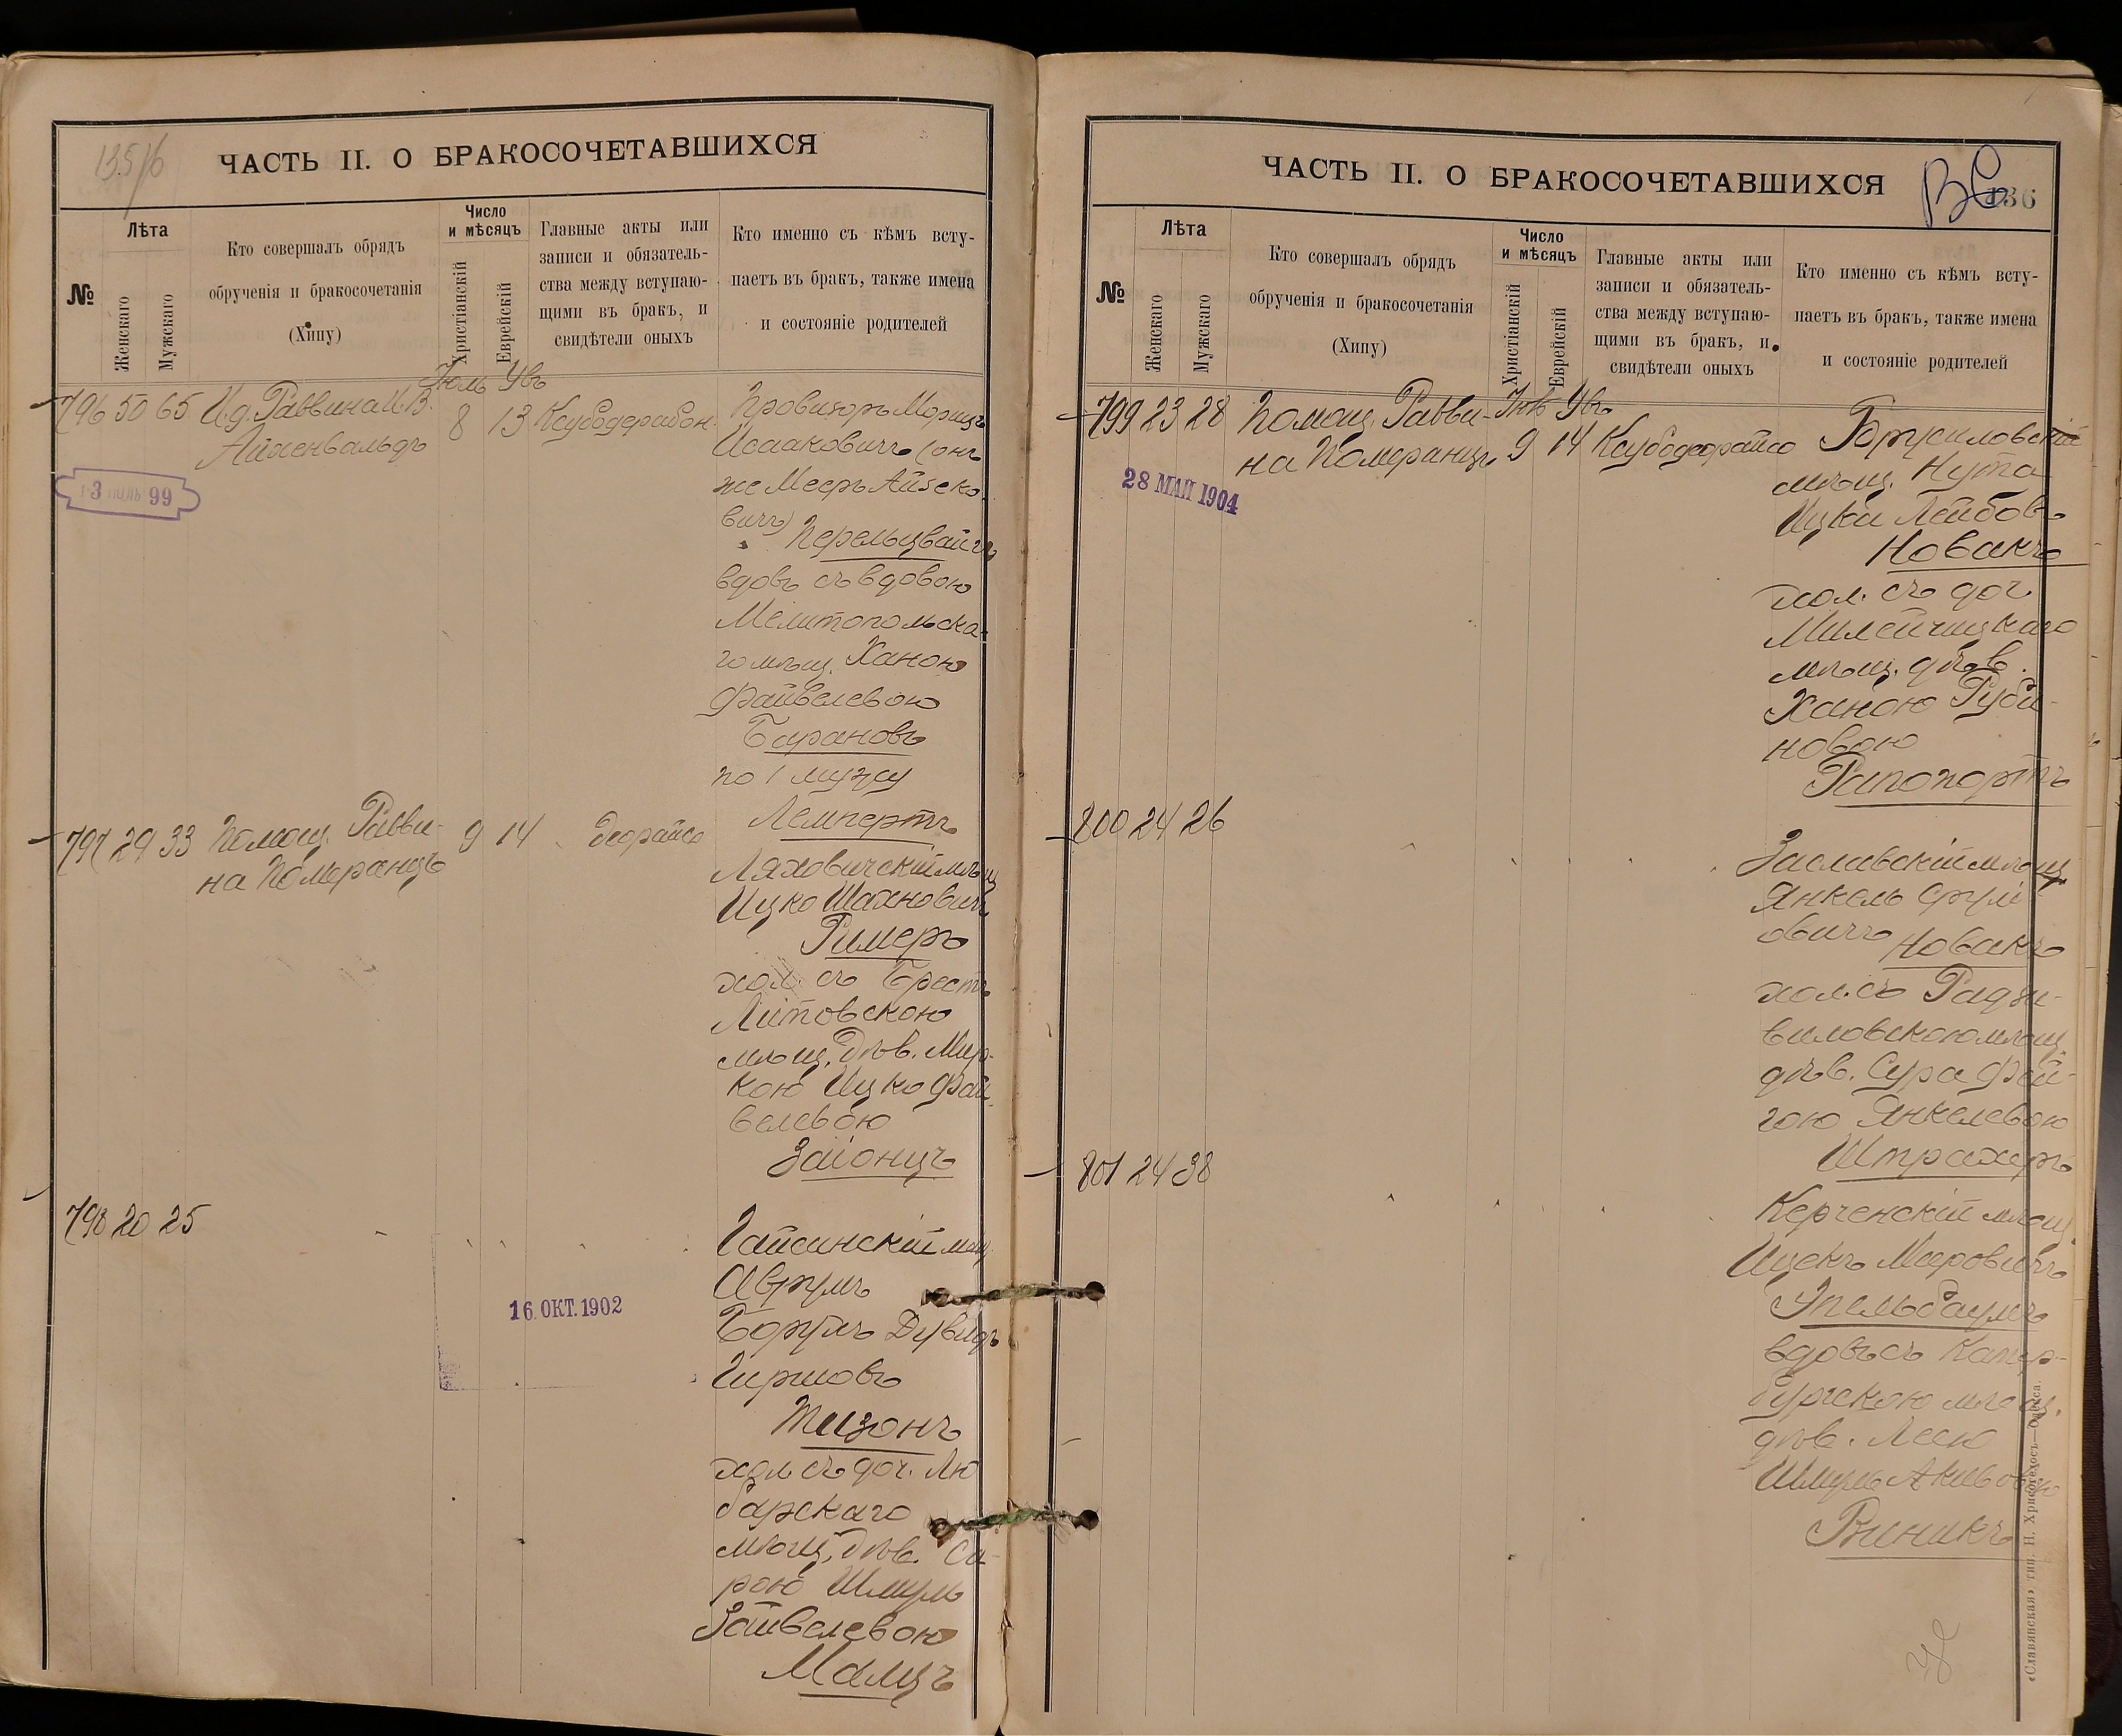 135/6
ЧАСТЬ II. О БРАКОСОЧЕТАВШИХСЯ
№
Лѣта
Женскаго
Мужскаго
Кто совершалъ обрядъ
обрученія и бракосочетанія
(Хипу)
Число
и мѣсяцъ
Христіанскій
Еврейскій
Главные акты или
записи и обязатель-
ства между вступаю-
щими въ бракъ, и
свидѣтели оныхъ
Кто именно съ кѣмъ всту-
паетъ въ бракъ, также имена
и состояніе родителей
796 50 65 И.д. Раввина И.В.
Айхенвальдъ
Іюль
8 13
Провизоръ Морицъ
Исааковичъ (онъ
же Мееръ Айзеко
вичъ)
Перельцвайгъ
вдовъ съ вдовою
Мелитопольска-
го мѣщ. Ханою
Файвелевою
Барановъ
по 1 мужу
Лемпертъ
ІЮЛЬ 99
797 29 33 Помощ. Равви-
на Померанцъ
9 14 деорайса
Ляховичскій мѣщ
Ицко Шахновичъ
Римеръ
хол. съ Брестъ
Литовскою
мѣщ. дѣв. Мир-
кою Ицко Фай-
велевою
Заіонцъ
798 20 25
16 ОКТ. 1902
Гайсинскій мѣщ.
Аврумъ
Борухъ Дувидъ
Гиршовъ
Тизонъ
хол. съ доч. Лю
барскаго
мѣщ. дѣв. Са-
рою Шмуль
Зайвелевою
Малцъ
ЧАСТЬ II. О БРАКОСОЧЕТАВШИХСЯ
136
№
Лѣта
Женскаго
Мужскаго
Кто совершалъ обрядъ
обрученія и бракосочетанія
(Хипу)
Число
и мѣсяцъ
Христіанскій
Еврейскій
Главные акты или
записи и обязатель-
ства между вступаю-
щими въ бракъ, и
свидѣтели оныхъ
Кто именно съ кѣмъ всту-
паетъ въ бракъ, также имена
и состояніе родителей
799 23 28 Помощ. Равви-
на Померанцъ
9 14 Ксубодеорайсо
28 МАЯ 1904
мѣщ. Нута
Ицка Лейбовъ
Новакъ
хол. съ доч.
Милейчицкаго
мѣщ. дѣв.
Ханою Руби-
новою
Рапопортъ
800 24 26
Заславскій мѣщ
Янкель Срули
овичъ Новакъ
хол. съ Радзи-
виловскою мѣщ.
дѣв. Сура Фей-
гою Янкелевою
Штрахеръ
801 24 38
Керченскій мѣщ.
Ицекъ Мееровичъ
Эпельбаумъ
вдовъ съ
мѣщ.
дѣв. Леею
Шмуль Акивовою
«Славянская» тип. Н. Хрисогелосъ—Одесса.